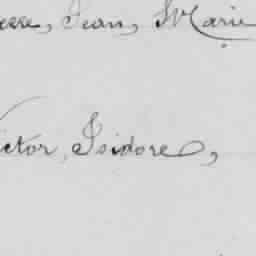 erre, Jean, Marie
ictor, Isidore,